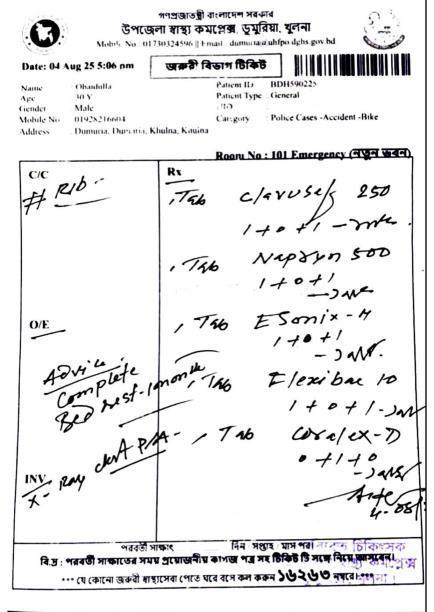 গণপ্রজাতন্ত্রী বাংলাদেশ সরকার
উপজেলা স্বাস্থ্য কমপ্লেক্স, ডুমুরিয়া, খুলনা
Mobile No : 01730324596 || Email : dumuria@uhfpo.dghs.gov.bd
Date: 04 Aug 25 5:06 pm
জরুরী বিভাগ টিকিট
Name Obaidulla
Patient ID : BDH590225
Age 30 Y
Patient Type : General
Gender Male
Mobile No 01928216604
Category : Police Cases -Accident -Bike
Address Dumuria, Dumuria, Khulna,
Room No : 101 Emergency (নতুন ভবন)
C/C
Rx
# Rib -
, Tab 250
1 + 0 + 1
, Tab Napryn 500
1 + 0 + 1
O/E
, Tab ESonix -
1 + 0 + 1
Advice
Complete
Bed rest - 1 month
, Tab Flexibac 10
1 + 0 + 1 -
INV
X - Ray chest P/A -
, Tab Coralex - D
0 + 1 + 0
পরবর্তী সাক্ষাৎ দিন সপ্তাহ মাস পর।
চিকিৎসক
বি.দ্র: পরবর্তী সাক্ষাতের সময় প্রয়োজনীয় কাগজ পত্র সহ টিকিট টি সঙ্গে নিয়ে আসবেন।
*** যে কোনো জরুরী স্বাস্থ্যসেবা পেতে ঘরে বসে কল করুন ১৬২৬৩ নম্বরে।